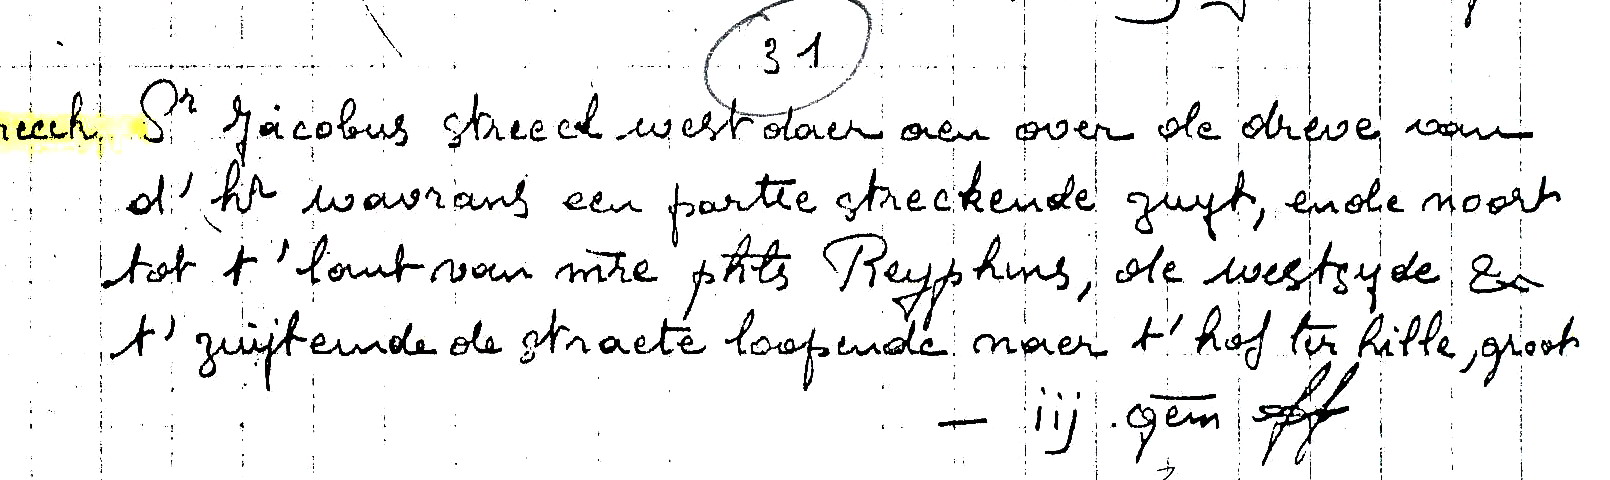 31
Sr Jacobus streecl west daer aen over de dreve van
d' hr wavrans een partie streckende zuyt, ende noort
tot t' lant van mre phls Reyphins, de westzyde &
t' zuijteinde de straete loopende naer t' hof ter hille, groot
— iij gem